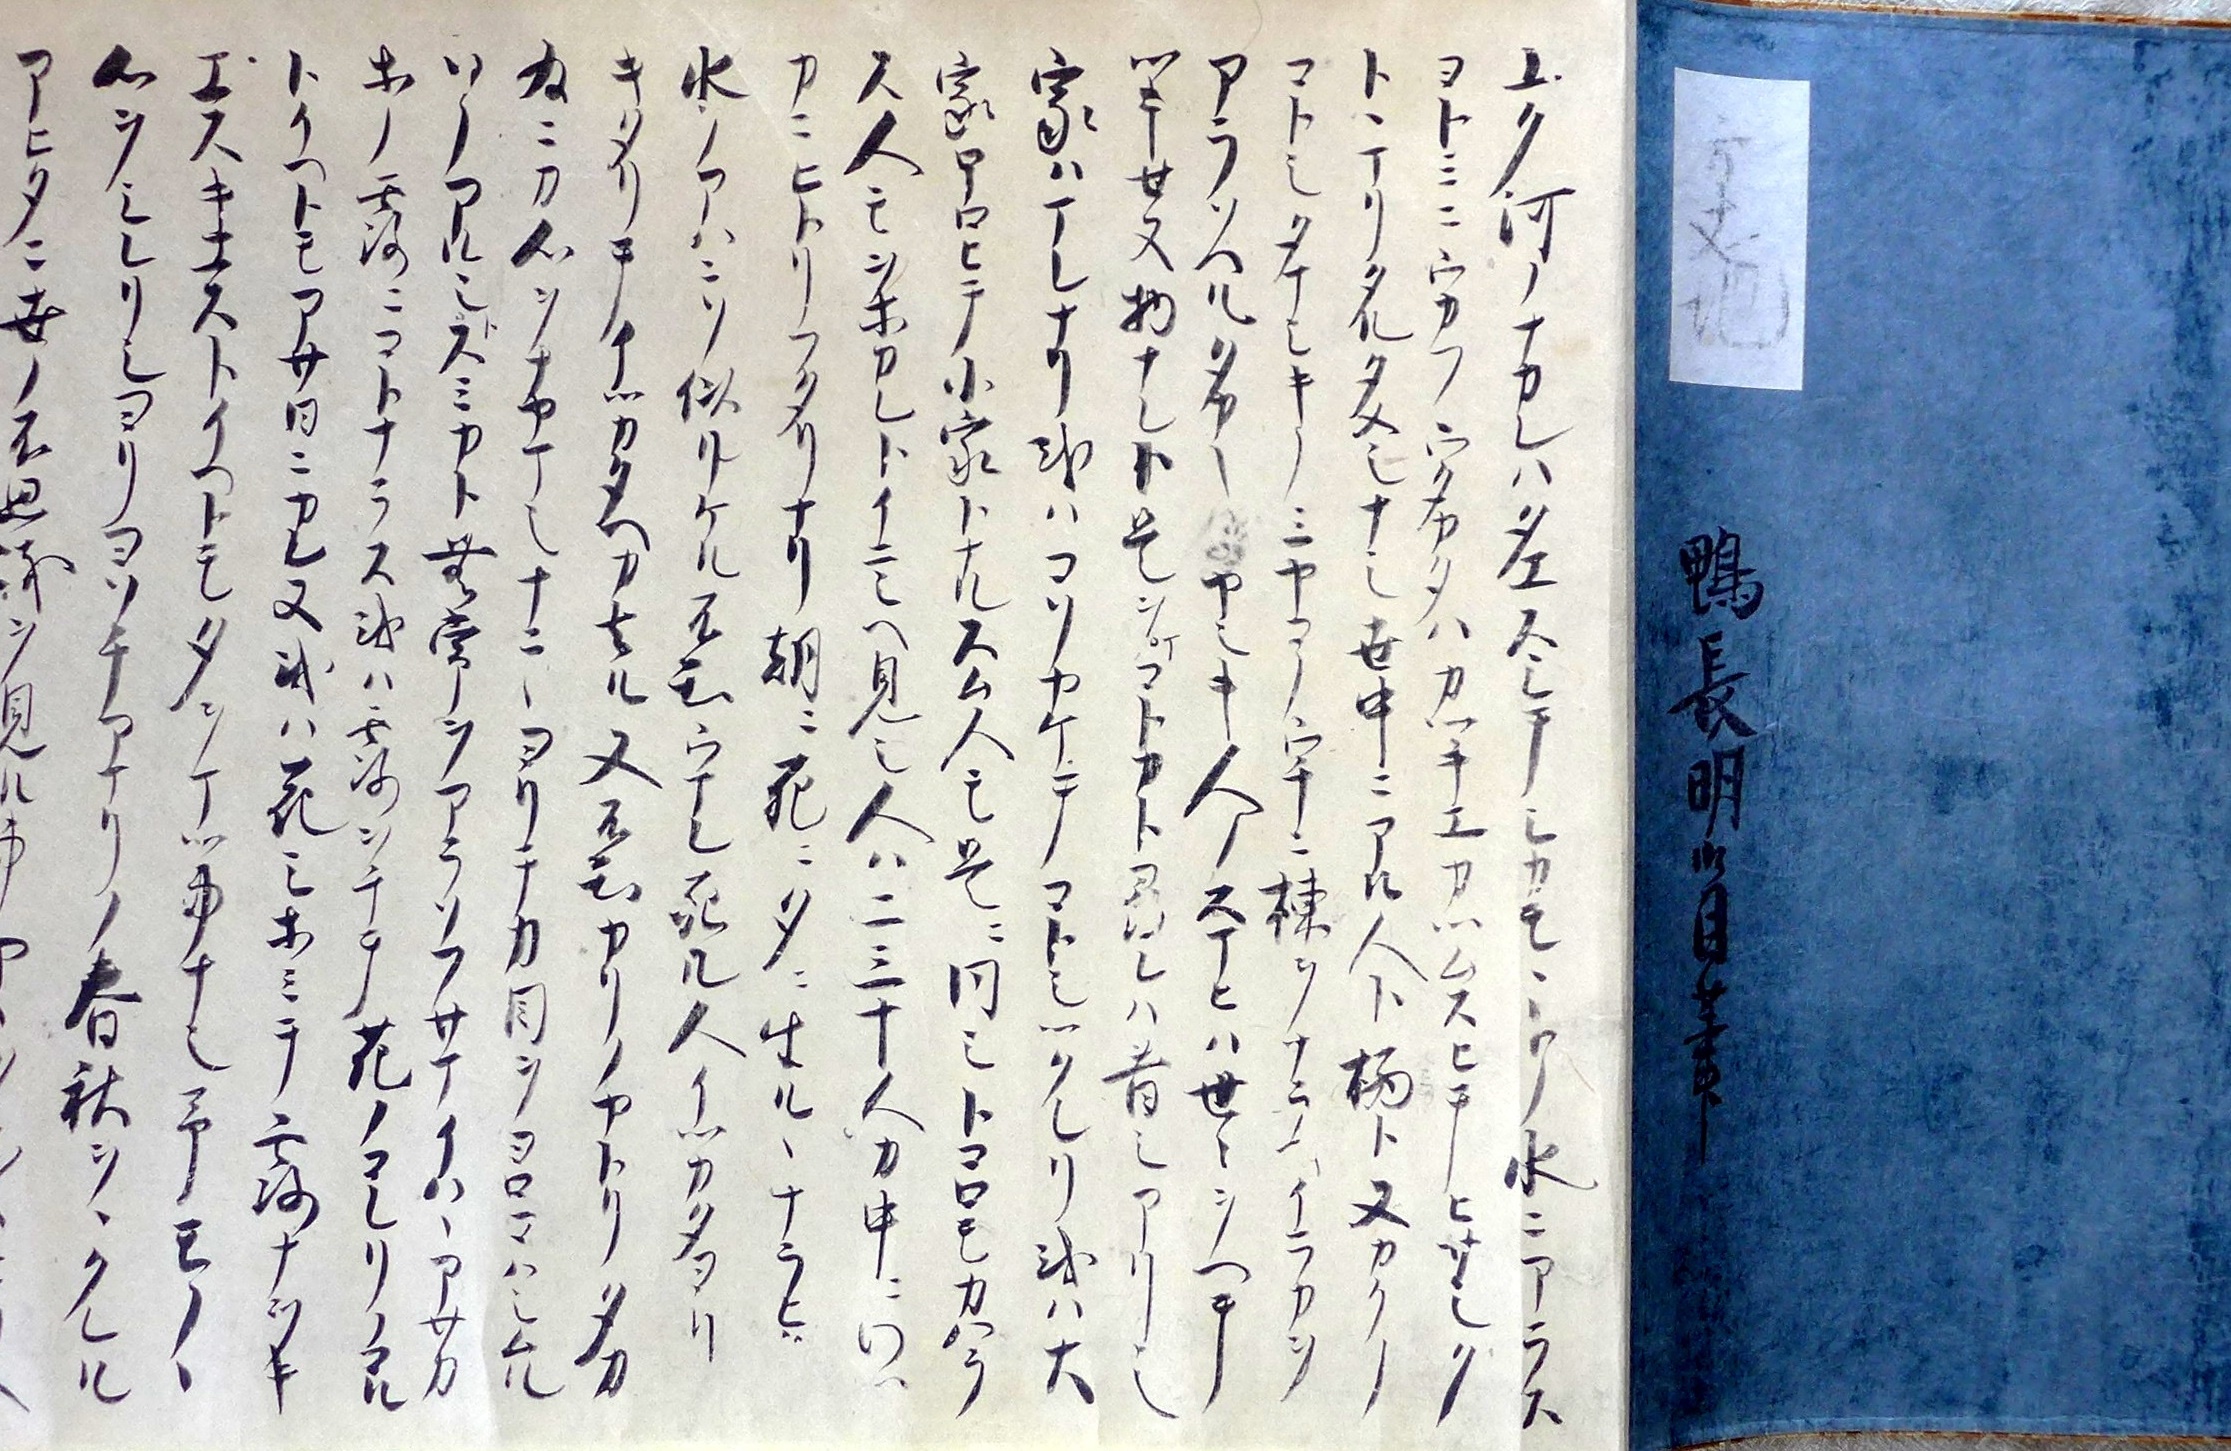 方丈記
鴨長明自筆
ユク河ノナカレハタエスシテシカモヽトノ水ニアラス
ヨトミニウカフウタカタハカツキエカツムスヒテヒサシク
トヽマリタルタメシナシ世中ニアル人ト栖ト又カクノ
コトシタマシキノミヤコノウチニ棟ヲナラヘイラカヲ
アラソヘルタカキイヤシキ人ノスマヒハ世ヽヲヘテ
ツキセヌ物ナレト是ヲマコトカト尋レハ昔シアリシ
家ハマレナリ或ハコソヤケテコトシツクレリ或ハ大
家ホロヒテ小家トナルスム人モ是ニ同シトコロモカハラ
ス人モヲホカレトイニシヘ見シ人ハ二三十人カ中ニワツ
カニヒトリフタリナリ朝ニ死ニ夕ニ生ルヽナラヒ
水ノアハニソ似リケル不知ウマレ死ル人イツカタヨリ
キタリテイツカタヘカ去ル又不知カリノヤトリタカ
為ニカ心ヲナヤマシナニヽヨリテカ目ヲヨロコハシムル
ソノアルシトスミカト無常ヲアラソフサマイハヽアサカ
ホノ露ニコトナラス或ハ露ヲチテ花ノコレリノコル
トイヘトモアサ日ニカレヌ或ハ花シホミテ露ナヲキ
エスキエストイヘトモタヲマツ事ナシ予モノヽ
心ヲシレリシヨリヨソチアマリノ春秋ヲヽクレル
アヒタニ世ノ不思議ヲ見ル事